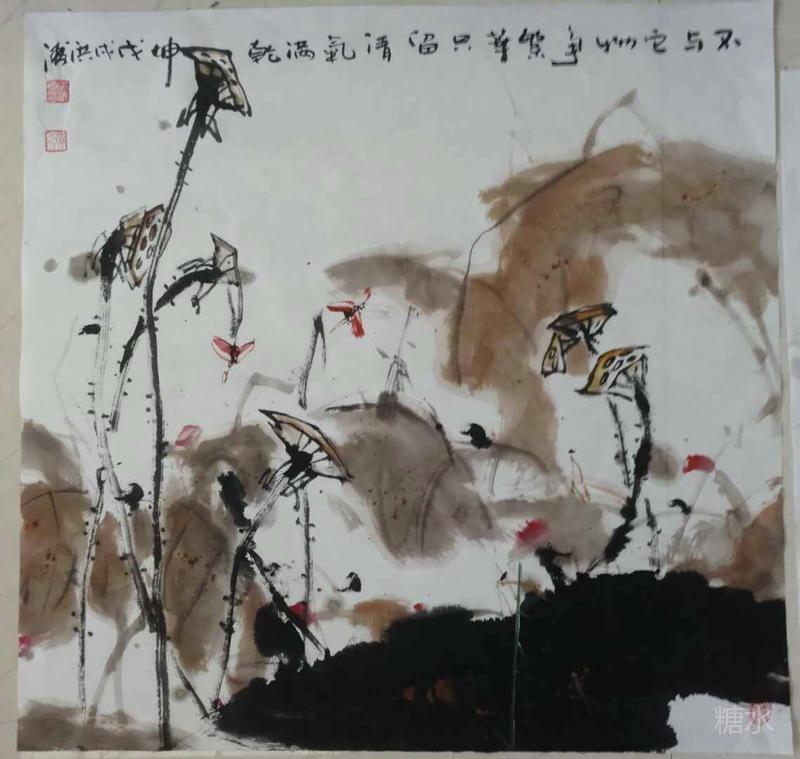 不与它物争繁华只留清氣满乾坤戊戌洪波
糖水